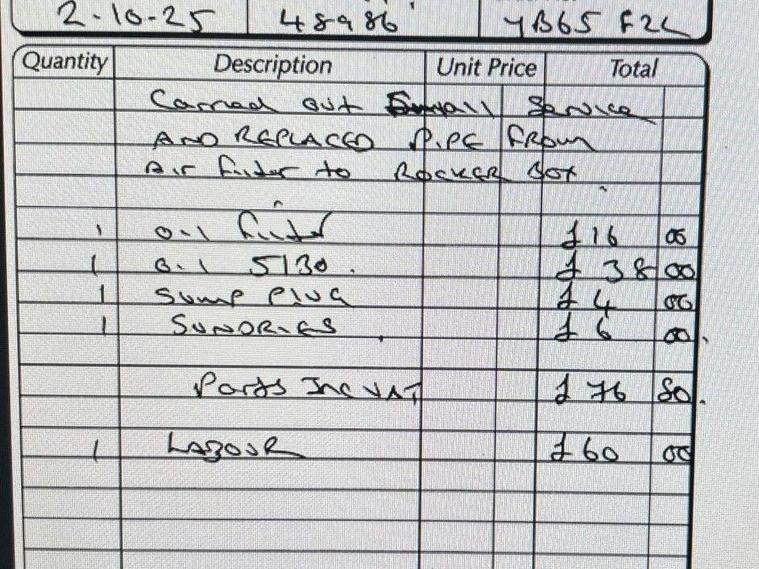 2-10-25 48986 YB65 F2L
Quantity Description Unit Price Total
Carried out Small Service
AND REPLACED PIPE FROM
Air filter to ROCKER BOX
1 Oil filter £16 00
1 Oil 5/30. £38 00
1 Sump Plug £4 00
1 SUNDRIES £6 00.
Parts Inc VAT £76 80.
1 LABOUR £60 00